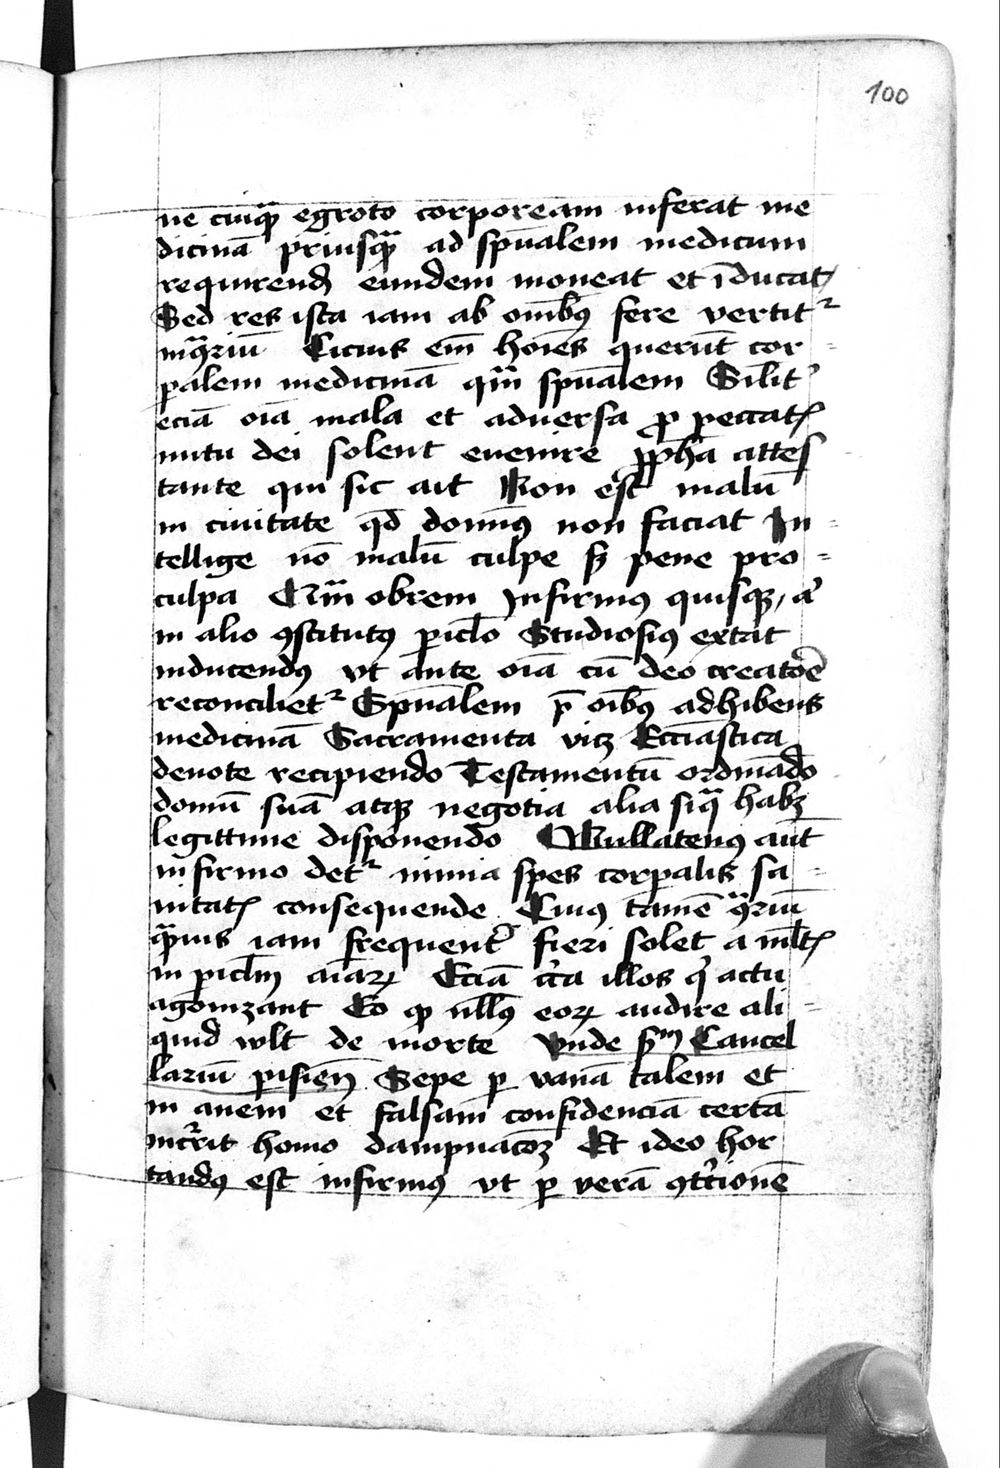 100
ne cuiqꝫ egroto corpoream inferat me
dicinā priusqꝫ ad spūalem medicum
requirendū eundem moneat et īducat
Sed res ista iam ab om̄ibꝰ fere vertitꝛ
in ꝯͣriū Cicius em̄ hoīes querūt cor-
ꝑalem medicinā qͣm spūalem Silitꝰ
eciā oīa mala et aduersa ꝓ peccatꝭ
nutu dei solent euenire ꝓph̄a attes
tante qui sic ait Non est malū
in ciuitate qd̄ domīꝰ non faciat In-
tellige nō malū culpe sꝫ pene pro-
culpa Qͣm obrem Infirmꝰ quisqꝫ aꝰ
in alio ꝯstitutꝰ ꝑic̄lo Studiosiꝰ extat
inducendꝰ vt ante oīa cū deo creatoē
reconcilietꝛ Spūalem p̄ oībꝰ adhibens
medicinā Sacramenta vitꝫ Ecc̄iastica
deuote recipiendo Testamentū ordinādo
domū suā atqꝫ negotia alia siqͣ habꝫ
legittime disponendo Nullatenꝰ aut̄
infirmo detꝛ nimia spes corꝑalis sa-
nitatꝭ consequende Cuiꝰ tamē ꝯͣriū
qͣuis iam frequentꝰ fieri solet a ml̄tꝭ
in ꝑic̄lm aīarꝝ Eciā cͥca illos qͥ actu
agonizant Eo ꝙ nllꝰ eorꝝ audire ali-
quid wlt de morte Vnde sꝫm Cancel
lariū pisien̄ Sepe ꝑ vanā talem et
in anem et falsam confidenciā certā
incͬrit homo dampnacōꝫ Et ideo hor
tandꝰ est infirmꝰ vt ꝑ verā ꝯtͥcionē